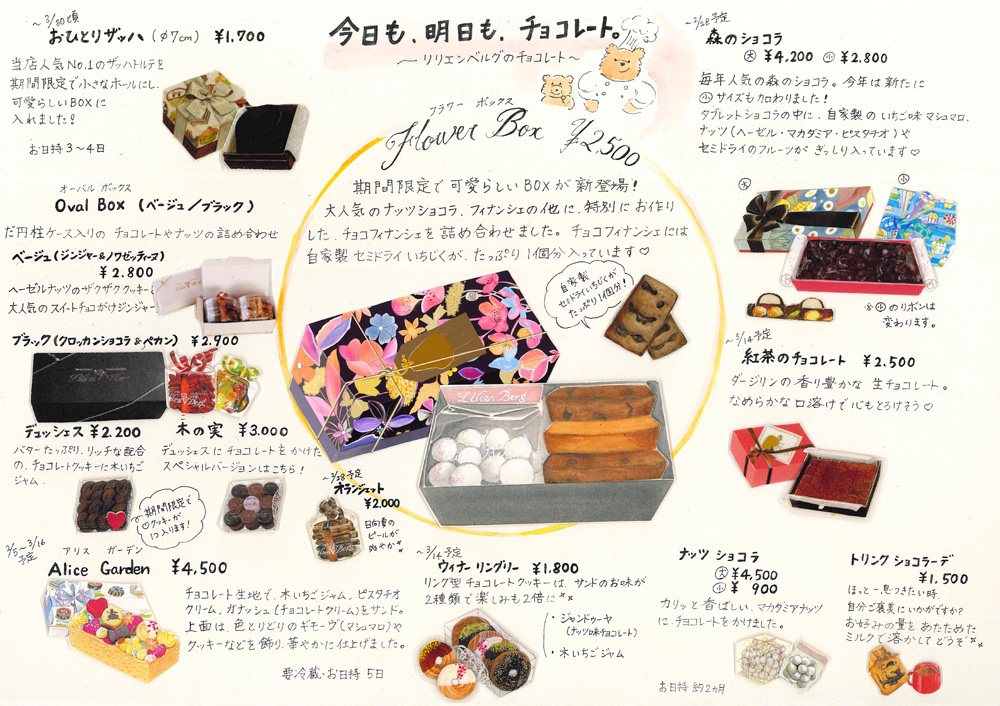 今日も、明日も、チョコレート。
～リリエンベルグのチョコレート～
～3/30頃
おひとりザッハ (φ7cm) ¥1.700
当店人気No.1のザッハトルテを
期間限定で小さなホールにし、
可愛らしいBOXに
入れました!
お日持 3～4日
オーバル ボックス
Oval Box (ベージュ/ブラック)
だ円柱ケース入りの チョコレートやナッツの詰め合わせ
ベージュ(ジンジャー&ノワゼッティーヌ)
¥2.800
ヘーゼルナッツのザクザククッキー
大人気のスイートチョコがけジンジャー
ブラック(クロッカンショコラ&ペカン) ¥2.900
Lilien Berg
デュッシェス ¥2.200
バターたっぷり、リッチな配合
の、チョコレートクッキーに木いちご
ジャム.
期間限定で
♡クッキーが
1つ入ります!
木の実 ¥3.000
デュッシェスにチョコレートをかけた
スペシャルバージョンはこちら!
フラワー ボックス
Flower Box ¥2,500
期間限定で可愛らしいBOXが新登場!
大人気のナッツショコラ、フィナンシェの他に、特別にお作り
した、チョコフィナンシェを詰め合わせました。チョコフィナンシェには
自家製 セミドライいちじくが、たっぷり1個分入っています♡
自家製
セミドライいちじくが
たっぷり1個分!
Lilien Berg
～2/28予定
オランジェット
¥2.000
日向夏の
ピールが
爽やか
～2/28予定
森のショコラ
大 ¥4,200 小 ¥2.800
毎年人気の森のショコラ。今年は新たに
小サイズも加わりました!
タブレットショコラの中に、自家製のいちご味マシュマロ、
ナッツ(ヘーゼル・マカダミア・ピスタチオ)や
セミドライのフルーツがぎっしり入っています♡
大
小
※小のリボンは
変わります。
～3/14予定
紅茶のチョコレート ¥2.500
ダージリンの香り豊かな 生チョコレート。
なめらかな口溶けで心もとろけそう♡
3/5～3/16
予定
アリス ガーデン
Alice Garden ¥4,500
チョコレート生地で、木いちごジャム、ピスタチオ
クリーム、ガナッシュ(チョコレートクリーム)をサンド。
上面は、色とりどりのギモーヴ(マシュマロ)や
クッキーなどを飾り、華やかに仕上げました。
要冷蔵・お日持 5日
～3/14予定
ウィナーリングリー ¥1.800
リング型 チョコレートクッキーは、サンドのお味が
2種類で楽しみも2倍に
・ジャンドゥーヤ
(ナッツ味チョコレート)
・木いちごジャム
ナッツ ショコラ
大 ¥4,500
小 ¥ 900
カリッと香ばしい、マカダミアナッツ
に、チョコレートをかけました。
お日持 約2カ月
トリンク ショコラーデ
¥1.500
ほっと一息つきたい時、
自分ご褒美にいかがですか?
お好みの量を あたためた
ミルクで溶かしてどうぞ